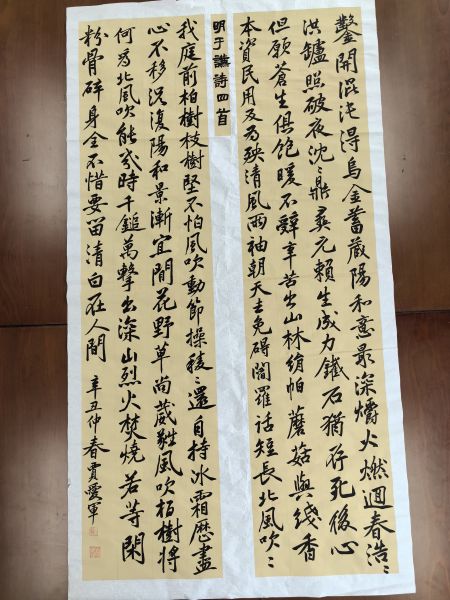 明于謙詩四首
鑿開混沌得烏金蓄藏陽和意最深爝火燃迴春浩〻
洪鑪照破夜沈〻鼎彝元賴生成力鐵石猶存死後心
但願蒼生俱飽暖不辭辛苦出山林絹帕蘑菇與綫香
本資民用反為殃清風兩袖朝天去免得閭羅話短長北風吹〻
我庭前柏樹枝樹堅不怕風吹動節操稜〻還自持冰霜歷盡
心不移況復陽和景漸宜閒花野草尚葳蕤風吹柏樹將
何為北風吹能幾時千鎚萬擊出深山烈火焚燒若等閑
粉骨碎身全不惜要留清白在人間 辛丑仲春賈愛軍